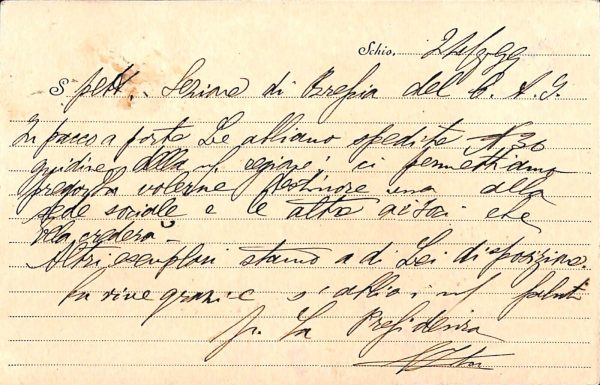 Schio, 21/9 99
Spett. Sezione di Brescia del C. A. I.
In pacco a parte Le abbiamo spedite N 30
guidine della ns/ regione; ci permettiamo
pregarla volerne destinare una alla
sede sociale e le altre ai soci che
Ella crederà
Altri esemplari stanno a di Lei disposizione.
La ringrazie s'abbia i ns/ saluti
p. La Presidenza